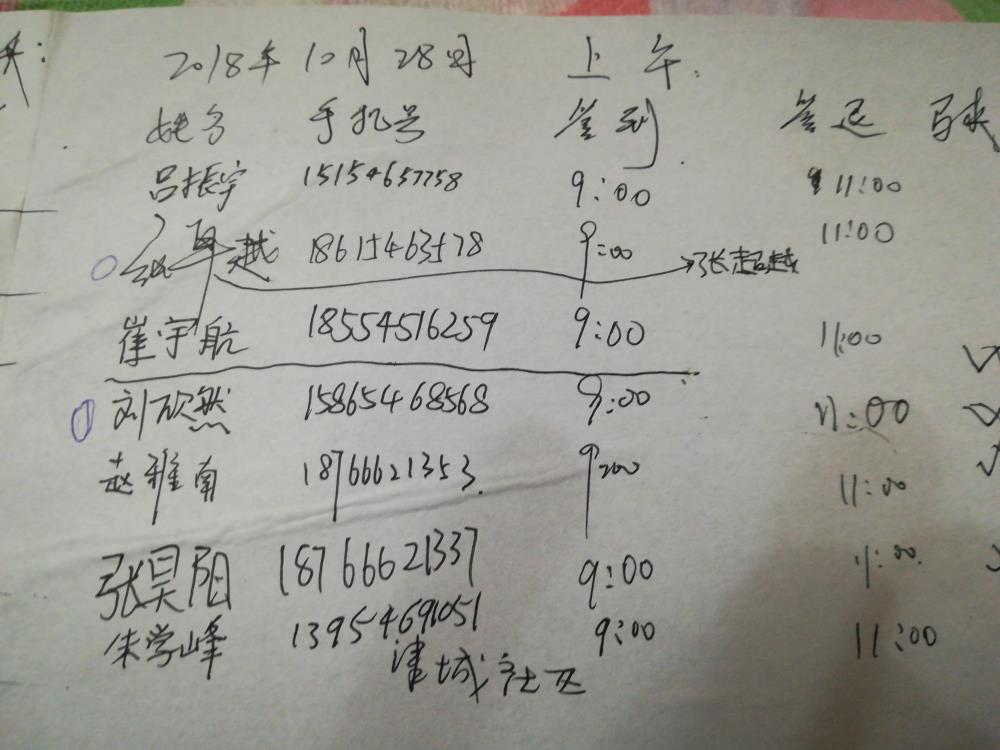 2018年10月28日 上午
姓名 手机号 签到 签退
吕振宇 15154657758 9:00 11:00
张卓越 18615463578 9:00 11:00
张超越
崔宇航 18554516259 9:00 11:00
刘欣然 15865468568 9:00 11:00
赵雅南 18766621353 9:00 11:00
张昊阳 18766621337 9:00 11:00
朱学峰 13954691051 9:00 11:00
津城社区